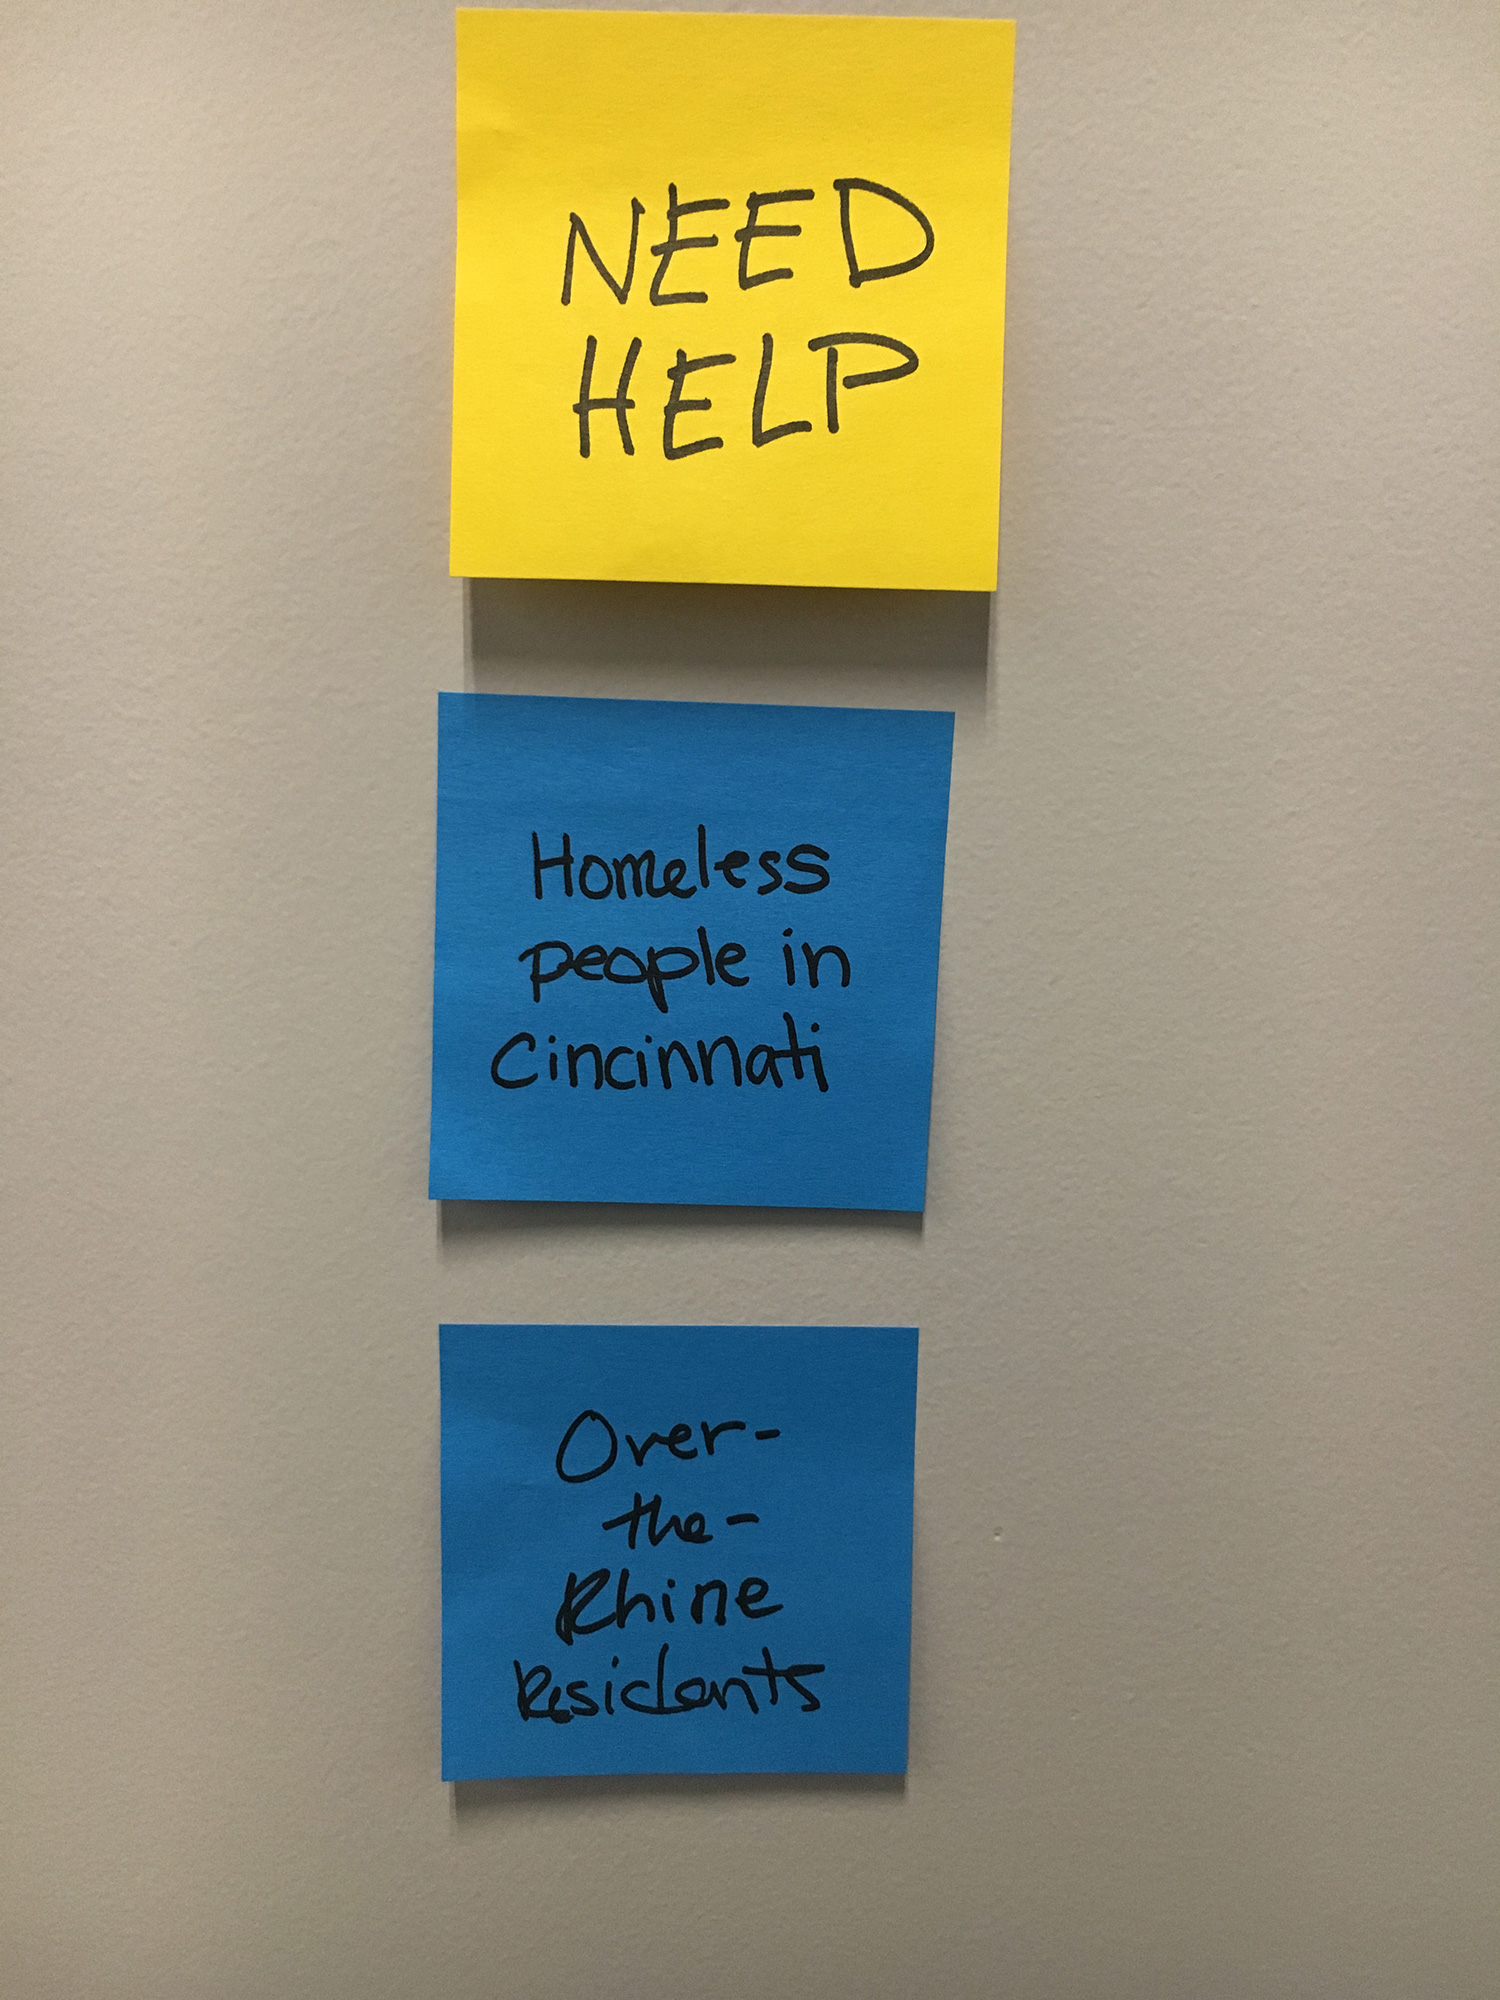 NEED
HELP
Homeless
people in
Cincinnati
Over-
the-
Rhine
Residents